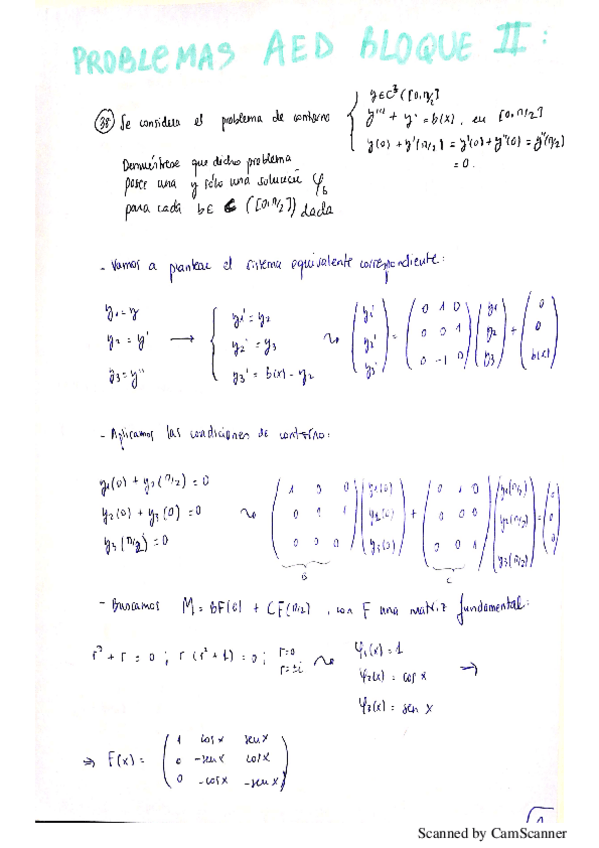 PROBLEMAS AED BLOQUE II:
38) Se considera el problema de contorno { y∈C³([0,π/2]
y''' + y' = b(x), en [0,π/2]
y(0) + y'(π/2) = y'(0) + y''(0) = y''(π/2)
= 0.
Demuéstrese que dicho problema
posee una y sólo una solución φ_b
para cada b ∈ C([0,π/2]) dada
- Vamos a plantear el sistema equivalente correspondiente:
y1 = y
y2 = y' → { y1' = y2
y3 = y'' y2' = y3
y3' = b(x) - y2
(y1' y2' y3') = (0 1 0
0 0 1
0 -1 0) (y1 y2 y3) + (0 0 b(x))
- Aplicamos las condiciones de contorno:
y1(0) + y2(π/2) = 0
y2(0) + y3(0) = 0
y3(π/2) = 0
(1 0 0
0 1 1
0 0 0) (y1(0) y2(0) y3(0)) + (0 1 0
0 0 0
0 0 1) (y1(π/2) y2(π/2) y3(π/2)) = (0 0 0)
B C
- Buscamos M = BF(0) + CF(π/2), con F una matriz fundamental:
r³ + r = 0 ; r(r²+1) = 0 ; r=0
r=±i
φ1(x) = 1
φ2(x) = cos x →
φ3(x) = sen x
⇒ F(x) = (1 cosx senx
0 -senx cosx
0 -cosx -senx)
1
Scanned by CamScanner